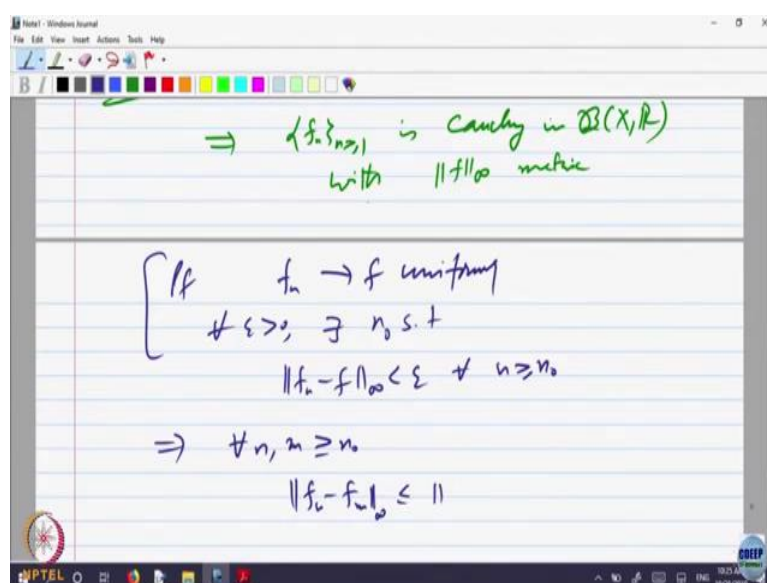 Note1 - Windows Journal
File Edit View Insert Actions Tools Help
B I
⇒ {fₙ}ₙ≥₁ is Cauchy in B(X, ℝ)
with ||f||∞ metric
If fₙ → f uniformly
∀ ε>0, ∃ n₀ s.t
||fₙ-f||∞ < ε ∀ n≥n₀
⇒ ∀ n, m ≥ n₀
||fₙ-fₘ||∞ ≤ ||
NPTEL
CDEEP
ENG